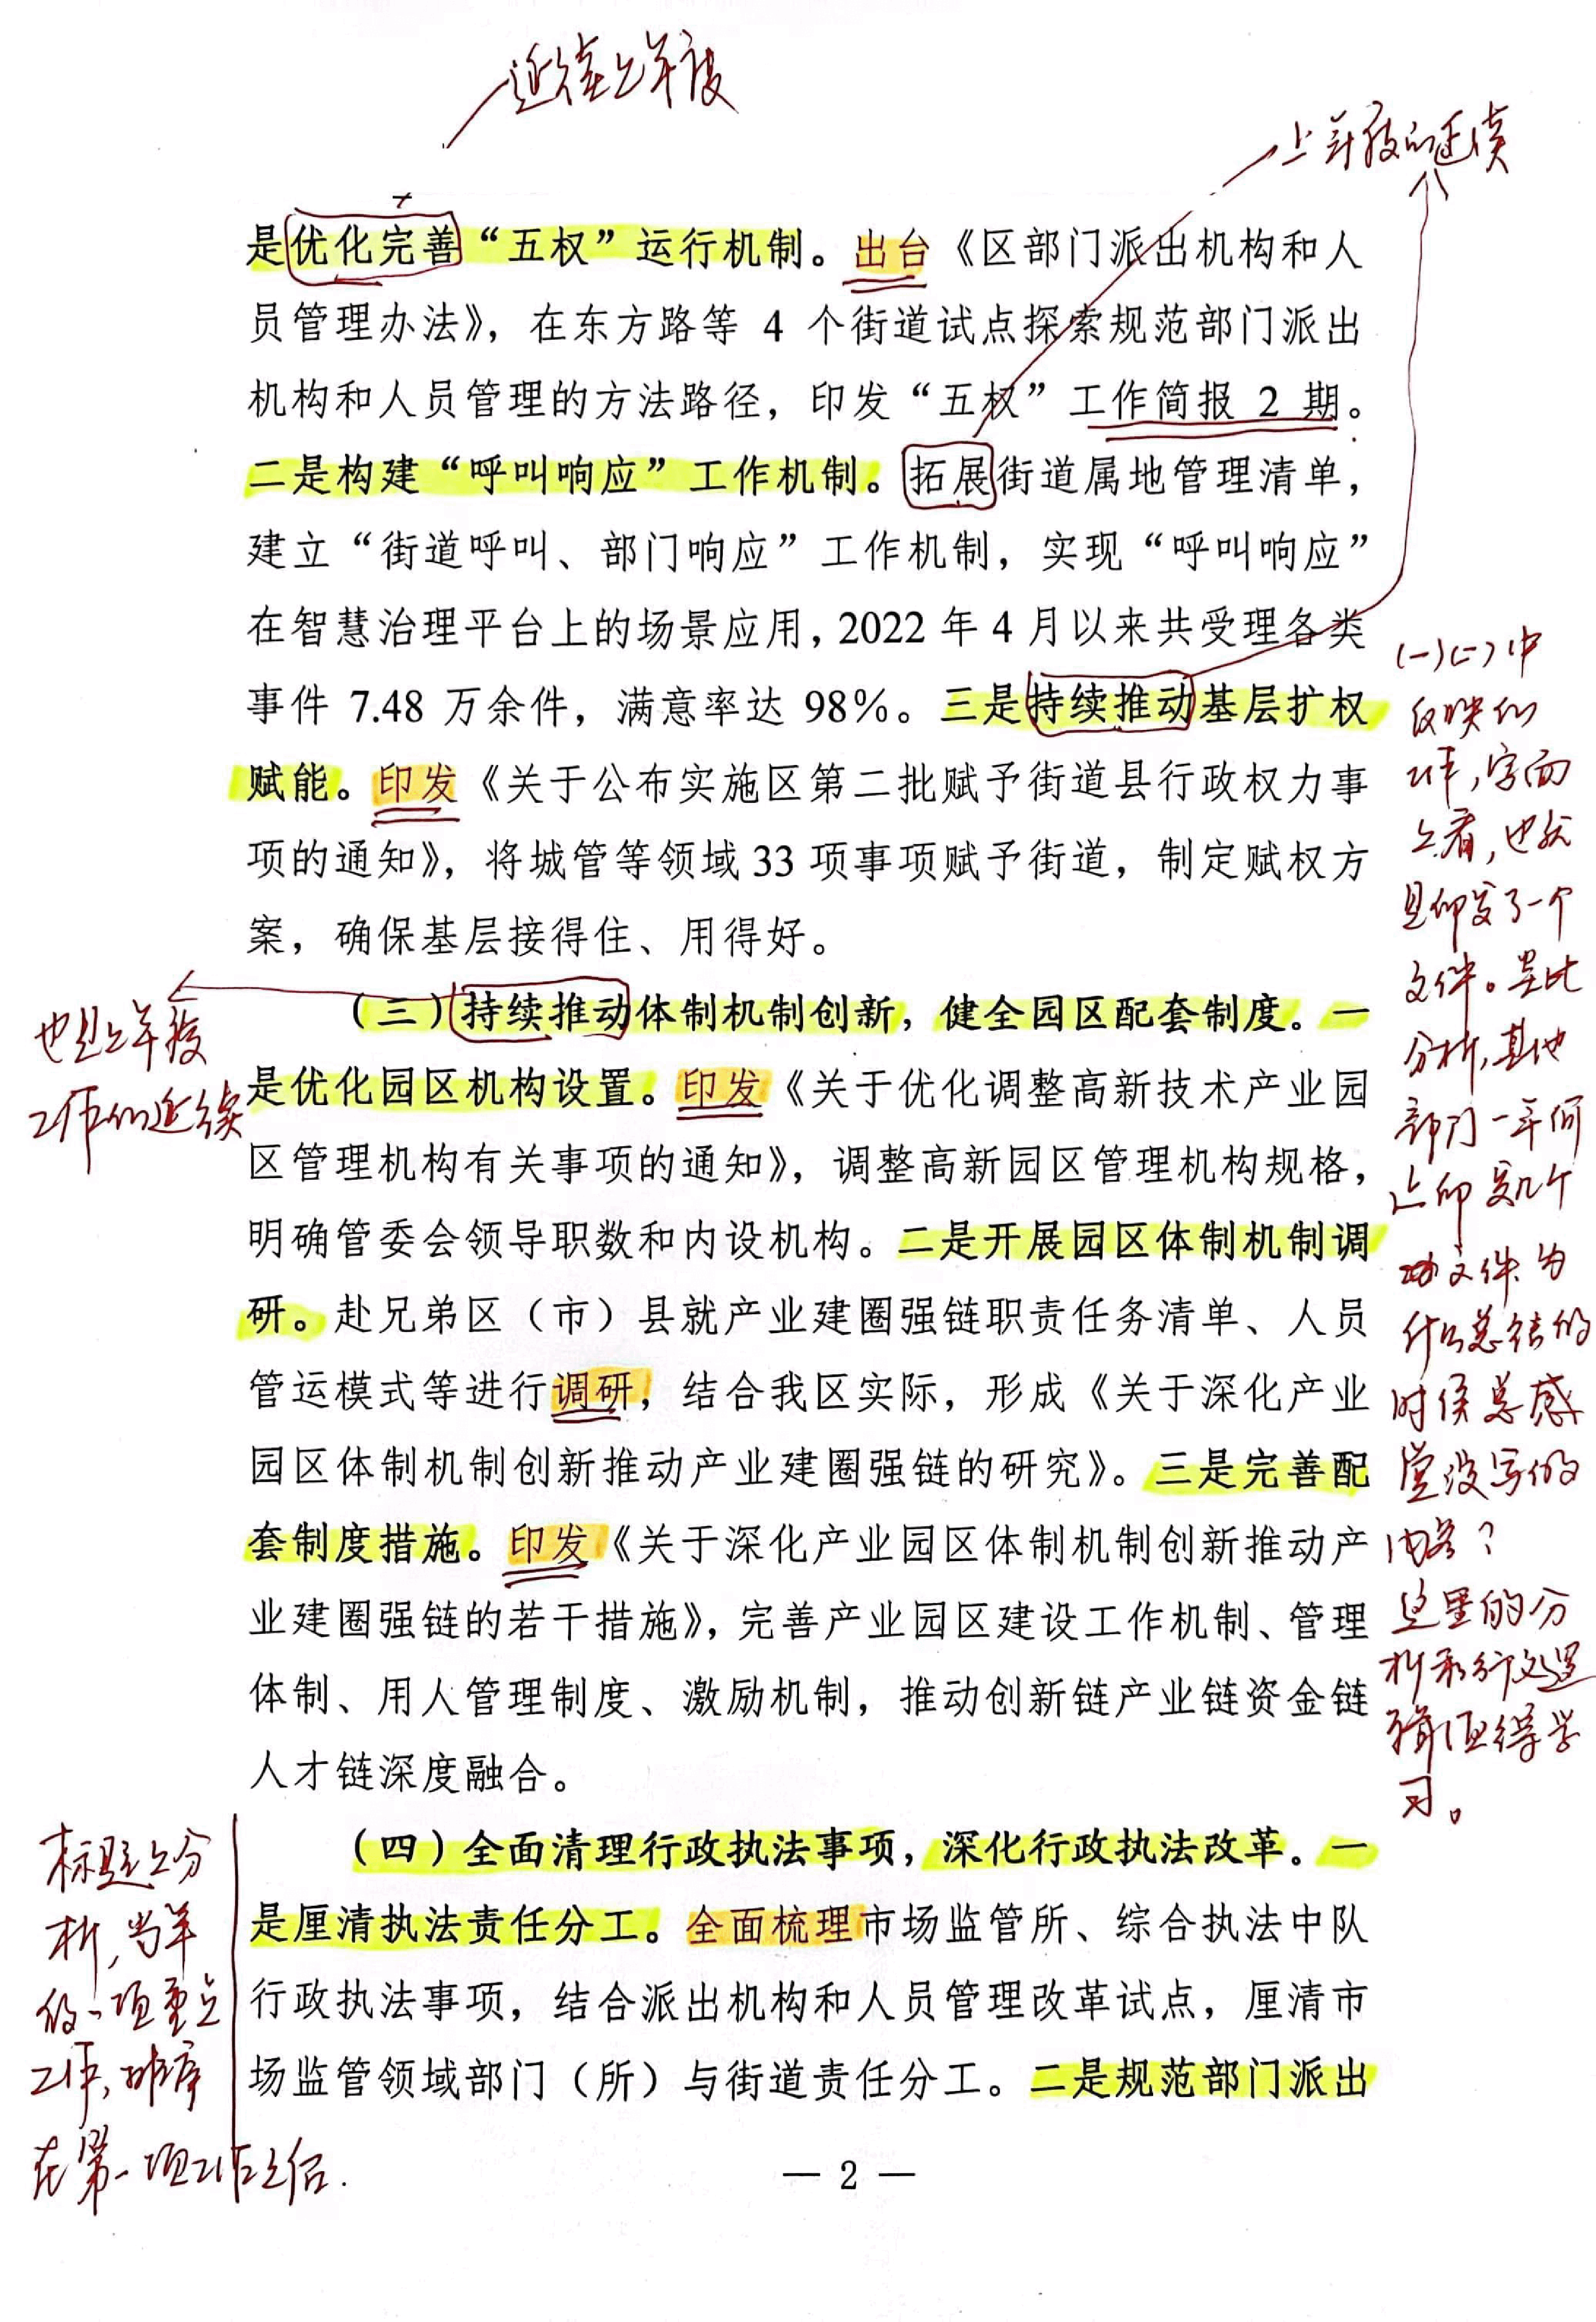 延续上年度
上年度的延续
是优化完善“五权”运行机制。出台《区部门派出机构和人
员管理办法》，在东方路等 4 个街道试点探索规范部门派出
机构和人员管理的方法路径，印发“五权”工作简报 2 期。
二是构建“呼叫响应”工作机制。拓展街道属地管理清单，
建立“街道呼叫、部门响应”工作机制，实现“呼叫响应”
在智慧治理平台上的场景应用，2022 年 4 月以来共受理各类
事件 7.48 万余件，满意率达 98%。三是持续推动基层扩权
赋能。印发《关于公布实施区第二批赋予街道县行政权力事
项的通知》，将城管等领域 33 项事项赋予街道，制定赋权方
案，确保基层接得住、用得好。
（三）持续推动体制机制创新，健全园区配套制度。一
是优化园区机构设置。印发《关于优化调整高新技术产业园
区管理机构有关事项的通知》，调整高新园区管理机构规格，
明确管委会领导职数和内设机构。二是开展园区体制机制调
研。赴兄弟区（市）县就产业建圈强链职责任务清单、人员
管运模式等进行调研，结合我区实际，形成《关于深化产业
园区体制机制创新推动产业建圈强链的研究》。三是完善配
套制度措施。印发《关于深化产业园区体制机制创新推动产
业建圈强链的若干措施》，完善产业园区建设工作机制、管理
体制、用人管理制度、激励机制，推动创新链产业链资金链
人才链深度融合。
（四）全面清理行政执法事项，深化行政执法改革。一
是厘清执法责任分工。全面梳理市场监管所、综合执法中队
行政执法事项，结合派出机构和人员管理改革试点，厘清市
场监管领域部门（所）与街道责任分工。二是规范部门派出
— 2 —
(一)(二)中
反映的
工作，字面
上看，也就
是印发了一个
文件。照此
分析，其他
部门一年何
止印发几个
文件、为
什么总结的
时候总感
觉没写的
内容？
这里的分
析和行文逻
辑值得学
习。
也是上年度
工作的延续
标题上分
析，当年
的一项重点
工作，排序
在第一项工作之后.